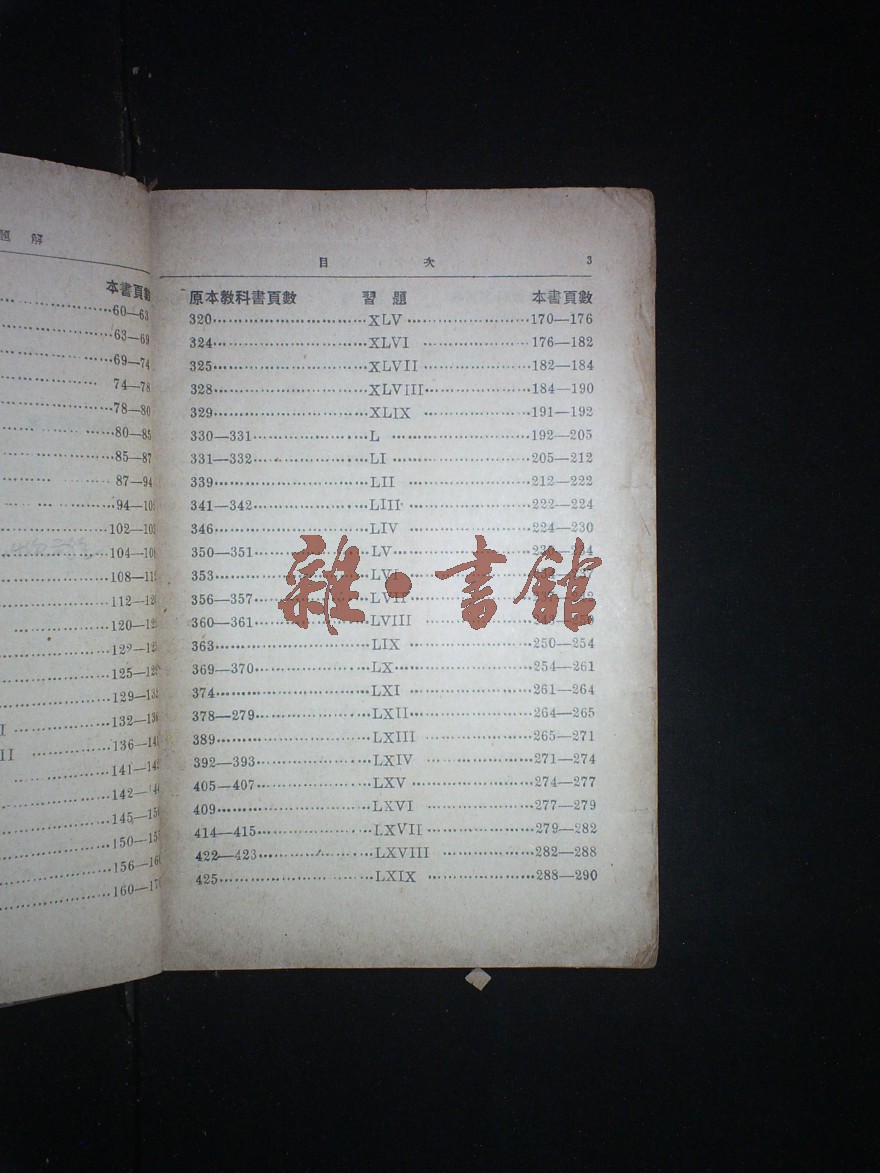 題 解
本書頁數
60—63
63—69
69—74
74—78
78—80
80—85
85—87
87—94
94—10
102—10
104—10
108—11
112—12
120—12
122—12
125—12
129—13
I 132—13
II 136—14
141—14
142—14
145—15
150—15
156—16
160—17
目 次 3
原本教科書頁數 習 題 本書頁數
320 XLV 170—176
324 XLVI 176—182
325 XLVII 182—184
328 XLVIII 184—190
329 XLIX 191—192
330—331 L 192—205
331—332 LI 205—212
339 LII 212—222
341—342 LIII 222—224
346 LIV 224—230
350—351 LV
353 LVI
356—357 LVII
360—361 LVIII
363 LIX 250—254
369—370 LX 254—261
374 LXI 261—264
378—279 LXII 264—265
389 LXIII 265—271
392—393 LXIV 271—274
405—407 LXV 274—277
409 LXVI 277—279
414—415 LXVII 279—282
422—423 LXVIII 282—288
425 LXIX 288—290
雜·書館